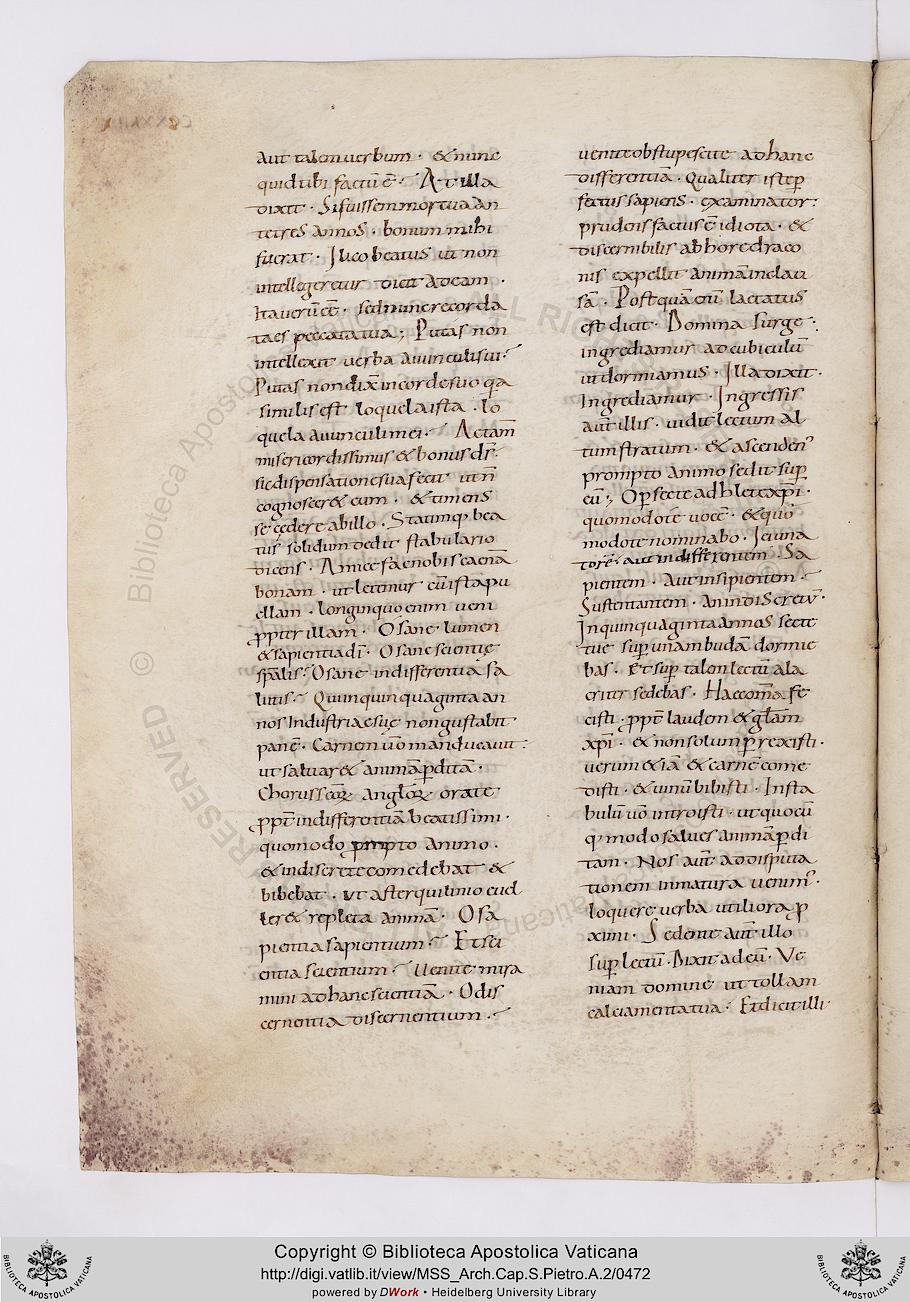 aut talem uerbum · & nunc
quid tibi factū ē · At illa
dixit · Si fuissem mortua an
te tres annos · bonum mihi
fuerat · Ilico beatus ut non
intellegeretur dicit ad eam ·
Ita uerū ēē · sed nunc recorda
ta es peccata tua ; Putas non
intellexit uerba auunculi sui
Putas non dixīn corde suo q̄a
similis est loquela ista · lo
quela auunculi mei · Actam
misericordissimus & bonus d̄s
sic dispensatione sua fecit ut n̄
cognoscer& eum · & timens
se cędere ab illo · Statimq; bea
tus solidum dedit stabulario
dicens · Amice fac nobis caenā
bonam · ut letemur cū ista pu
ellam · longinquo enim ueni
ꝓpter illam · O sane lumen
& sapientia dī · O sane scientię
sp̄alis · O sane indifferentia sa
lutis · Qui in quinquaginta an
nos industriae suę non gustabit
panē · Carnem ūo manducauit :
ut saluar& animā ꝑditā ·
Chorus scōꝝ anglōꝝ orate
ꝓpt̄ indifferentiā beatissimi ·
quomodo prompto animo ·
& indiscrete comedebat &
bibebat · ut a sterquilinio eud
ler& repleta animā · O sa
pientia sapientium · Et sci
entia scientium · Uenite mira
mini ad hanc scientiā · O dis
cernentia discernentium ·
uenite obstupescite ad hanc
differentiā · qualiter iste ꝑ
fectus sapiens · examinator :
prudens factus ē idiota · &
discernibilis ab hore draco
nis expellit animā inclau
sā · Postquā cū lactatus
est dicit · Domina surge ·
ingrediamur ad cubiculū
ut dormiamus · Illa dixit ·
Ingrediamur · Ingressis
aūt illis · uidit lectum al
tum stratum · & ascendens
prompto animo sedit suꝑ
eū ; O ꝑfecte adhleta xp̄i ·
quomodo te uocē · & quo
modo te nominabo · Ieiuna
torē · aut indifferentem · Sa
pientem · Aut insipientem ·
Sustentantem · an indiscretū ·
In quinquaginta annos secte
tue suꝑ unam budā dormie
bas · Et suꝑ talem lectū ala
criter sedebas · Haec om̄a fe
cisti · ꝓpt̄ laudem & gl̄am
xp̄i · & non solum ꝑrexisti ·
uerum & iā & carnē come
disti · & uinū bibisti · In sta
bulū ūo introisti · ut quocū
q; modo salues animā ꝑdi
tam · Nos aūt ad disputa
tionem inmatura uenim᷒ ·
loquere uerba utiliora ꝓ
ximi · Sedente aūt illo
suꝑ lectū · Dixit ad eū · Ve
niam domine ut tollam
calciamenta tua · Et dicit illi
Copyright © Biblioteca Apostolica Vaticana
http://digi.vatlib.it/view/MSS_Arch.Cap.S.Pietro.A.2/0472
powered by DWork • Heidelberg University Library